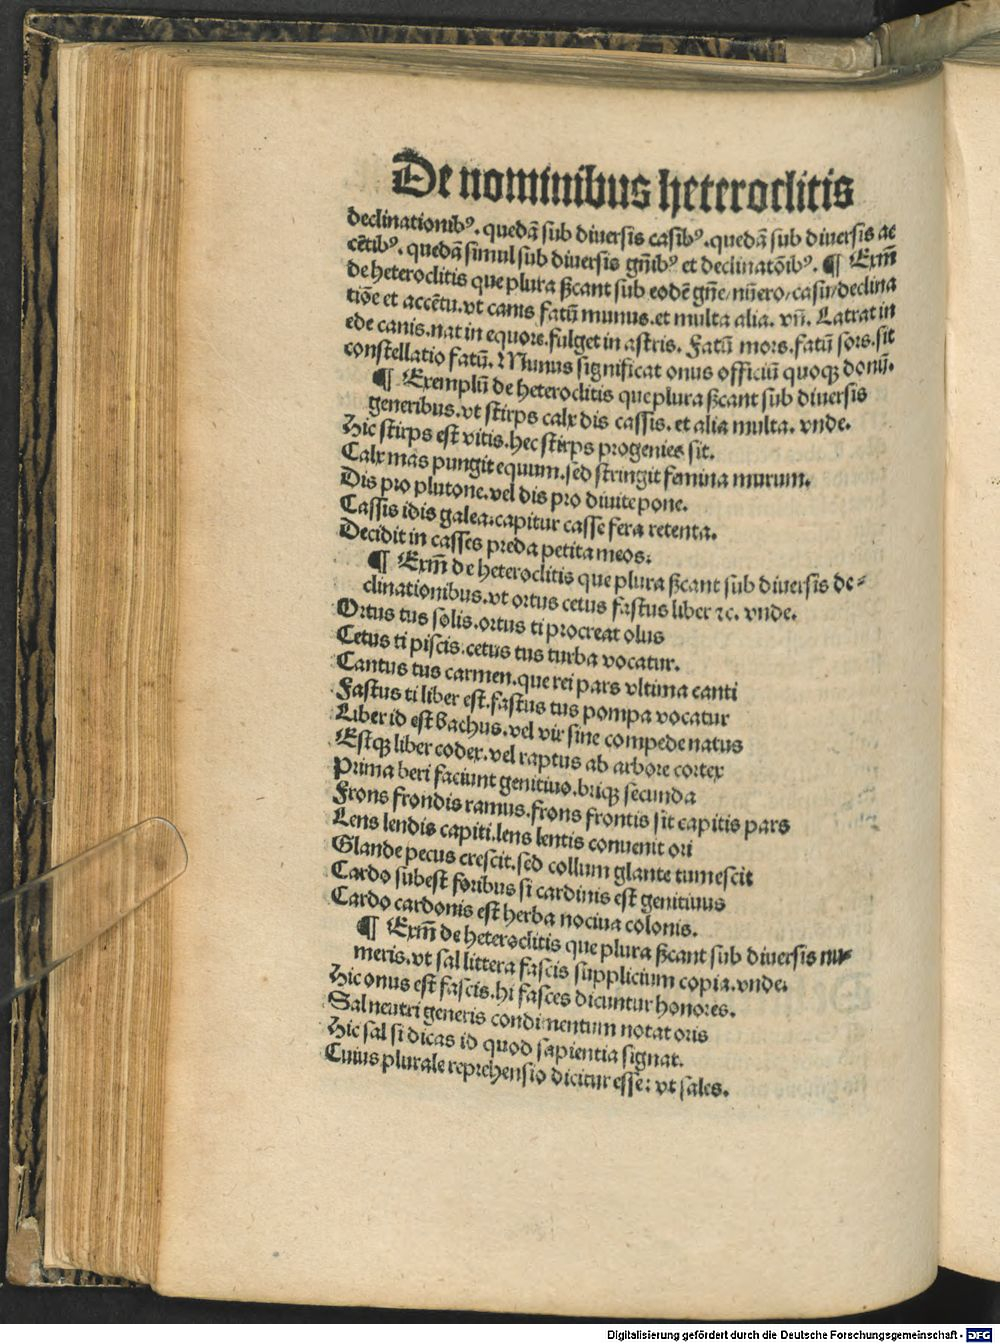 De nominibus heteroclitis
declinationibꝰ. quedā sub diuersis casibꝰ. quedā sub diuersis ac
cētibꝰ. quedā simul sub diuersis gn̄ibꝰ et declinatōibꝰ. ¶ Exm̄
de heteroclitis que plura ßcant sub eodē gn̄e/ nūero/ casu/ declina
tiōe et accētu. vt canis fatū munus. et multa alia. vn̄. Latrat in
ede canis. nat in equore. fulget in astris. Fatū mors. fatū sors. sit
constellatio fatū. Munus significat onus officiū quoqꝫ donū.
¶ Exemplū de heteroclitis que plura ßcant sub diuersis
generibus. vt stirps calx dis cassis. et alia multa. vnde.
Hic stirps est vitis. hec stirps progenies sit.
Calx mas pungit equum. sed stringit femina murum.
Dis pro plutone. vel dis pro diuite pone.
Cassis idis galea: capitur casse fera retenta.
Decidit in casses preda petita meos.
¶ Exm̄ de heteroclitis que plura ßcant sub diuersis de-
clinationibus. vt ortus cetus fastus liber ⁊c. vnde.
Ortus tus solis. ortus ti procreat olus
Cetus ti piscis. cetus tus turba vocatur.
Cantus tus carmen. que rei pars vltima canti
Fastus ti liber est. fastus tus pompa vocatur
Liber id est bachus. vel vir sine compede natus
Estqꝫ liber codex. vel raptus ab arbore cortex
Prima beri faciunt genitiuo. briqꝫ secunda
Frons frondis ramus. frons frontis sit capitis pars
Lens lendis capiti. lens lentis conuenit ori
Glande pecus crescit. sed collum glante tumescit
Cardo subest foribus si cardinis est genitiuus
Cardo cardonis est herba nociua colonis.
¶ Exm̄ de heteroclitis que plura ßcant sub diuersis nu-
meris. vt sal littera fascis supplicium copia. vnde.
Hic onus est fascis. hi fasces dicuntur honores.
Sal neutri generis condimentum notat oris
Hic sal si dicas id quod sapientia signat.
Cuius plurale reprehensio dicitur esse: vt sales.
Digitalisierung gefördert durch die Deutsche Forschungsgemeinschaft - DFG